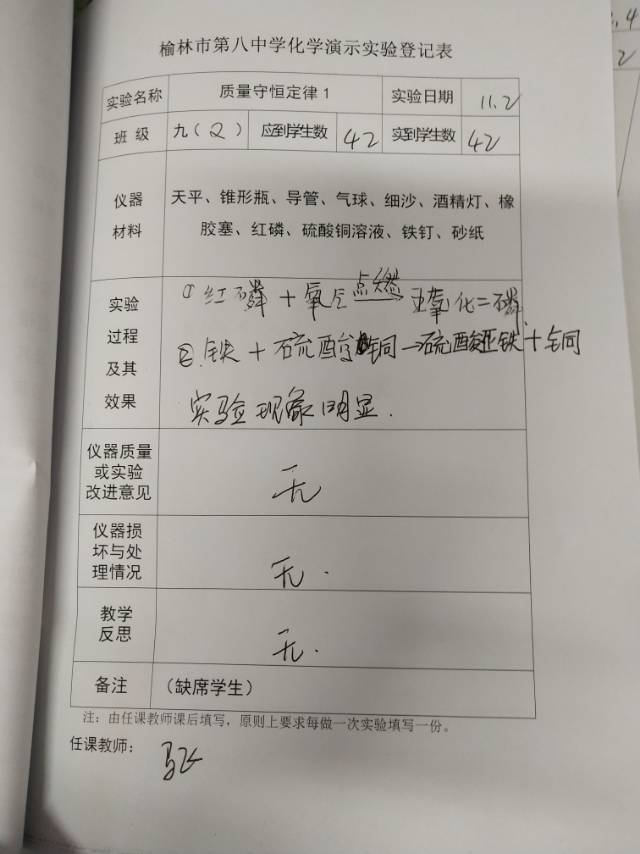 榆林市第八中学化学演示实验登记表
实验名称 质量守恒定律1 实验日期 11.2
班 级 九（2） 应到学生数 42 实到学生数 42
仪器
材料
天平、锥形瓶、导管、气球、细沙、酒精灯、橡
胶塞、红磷、硫酸铜溶液、铁钉、砂纸
实验
过程
及其
效果
①红磷 + 氧气 点燃→ 五氧化二磷.
②.铁 + 硫酸铜→硫酸亚铁+铜
实验现象明显.
仪器质量
或实验
改进意见
无
仪器损
坏与处
理情况
无.
教学
反思
无.
备注 （缺席学生）
注：由任课教师课后填写，原则上要求每做一次实验填写一份。
任课教师：